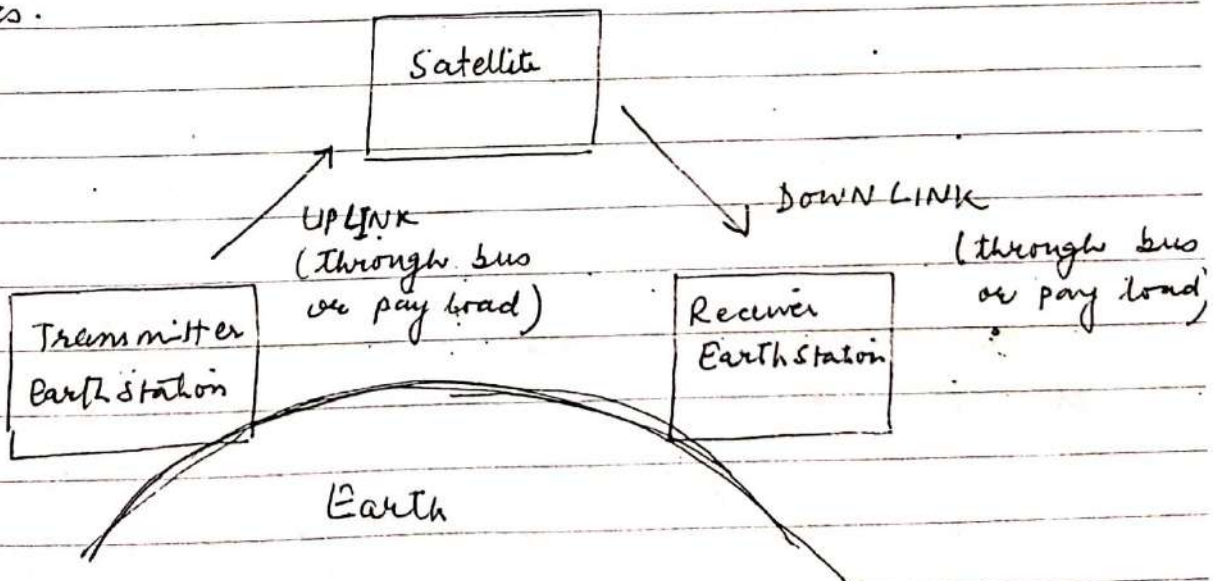 s.
Satellite
UPLINK
(through bus
or pay load)
DOWNLINK
(through bus
or pay load)
Transmitter
Earth Station
Receiver
Earth Station
Earth